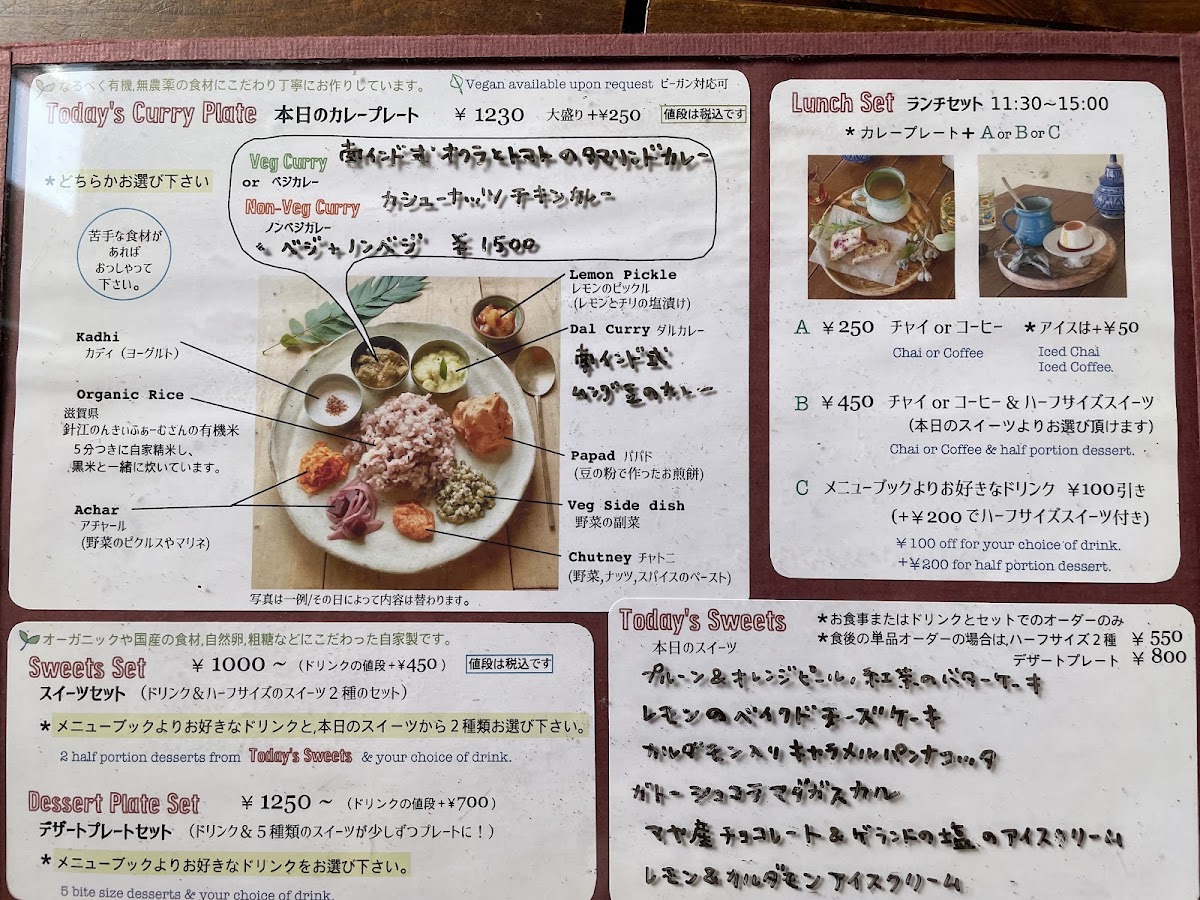 なるべく有機,無農薬の食材にこだわり丁寧にお作りしています。
Vegan available upon request ビーガン対応可
Today's Curry Plate 本日のカレープレート ¥ 1230 大盛り+¥250 値段は税込です
*どちらかお選び下さい
Veg Curry 南インド式 オクラとトマトのタマリンドカレー
or ベジカレー
Non-Veg Curry カシューナッツチキンカレー
ノンベジカレー
ベジ+ノンベジ ¥1500
苦手な食材が
あれば
おっしゃって
下さい。
Kadhi
カディ（ヨーグルト）
Organic Rice
滋賀県
針江のんきぃふぁーむさんの有機米
５分つきに自家精米し、
黒米と一緒に炊いています。
Achar
アチャール
(野菜のピクルスやマリネ)
Lemon Pickle
レモンのピックル
(レモンとチリの塩漬け)
Dal Curry ダルカレー
南インド式
ムング豆のカレー
Papad パパド
(豆の粉で作ったお煎餅)
Veg Side dish
野菜の副菜
Chutney チャトニ
(野菜,ナッツ,スパイスのペースト)
写真は一例/その日によって内容は替わります。
Lunch Set ランチセット 11:30~15:00
*カレープレート+ A or B or C
A ¥250 チャイ or コーヒー *アイスは+¥50
Chai or Coffee Iced Chai
Iced Coffee.
B ¥450 チャイ or コーヒー & ハーフサイズスイーツ
(本日のスイーツよりお選び頂けます)
Chai or Coffee & half portion dessert.
C メニューブックよりお好きなドリンク ¥100引き
(+¥200でハーフサイズスイーツ付き)
¥100 off for your choice of drink.
+¥200 for half portion dessert.
オーガニックや国産の食材,自然卵,粗糖などにこだわった自家製です。
Sweets Set ¥ 1000 ~ (ドリンクの値段+¥450) 値段は税込です
スイーツセット （ドリンク&ハーフサイズのスイーツ２種のセット）
*メニューブックよりお好きなドリンクと,本日のスイーツから２種類お選び下さい。
2 half portion desserts from Today's Sweets & your choice of drink.
Dessert Plate Set ¥ 1250 ~ (ドリンクの値段+¥700)
デザートプレートセット （ドリンク&５種類のスイーツが少しずつプレートに！）
*メニューブックよりお好きなドリンクをお選び下さい。
5 bite size desserts & your choice of drink.
Today's Sweets *お食事またはドリンクとセットでのオーダーのみ
本日のスイーツ *食後の単品オーダーの場合は,ハーフサイズ２種 ¥ 550
デザートプレート ¥ 800
プルーン&オレンジピール、紅茶のバターケーキ
レモンのベイクドチーズケーキ
カルダモン入りキャラメルパンナコッタ
ガトーショコラマダガスカル
マヤ産チョコレート&ゲランドの塩のアイスクリーム
レモン&カルダモンアイスクリーム